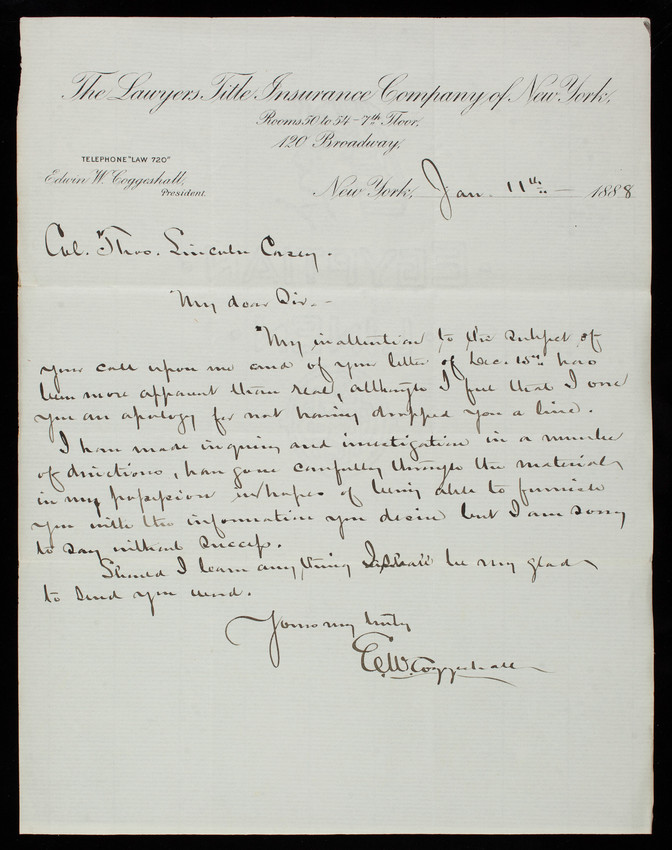 The Lawyers Title Insurance Company of New York,
Rooms 50 to 54 - 7th Floor,
120 Broadway,
TELEPHONE "LAW 720"
Edwin W. Coggeshall,
President.
New York, Jan. 11th 1888
Col. Thos. Lincoln Casey.
My dear Sir.-
My inattention to the subject of
your call upon me and of your letter of Dec. 15th has
been more apparent than real, although I feel that I owe
you an apology for not having dropped you a line.
I have made inquiry and investigation in a number
of directions, have gone carefully through the materials
in my possession in hopes of being able to furnish
you with the information you desire but I am sorry
to say without success.
Should I learn anything I shall be very glad
to send you word.
Yours very truly
E.W. Coggeshall